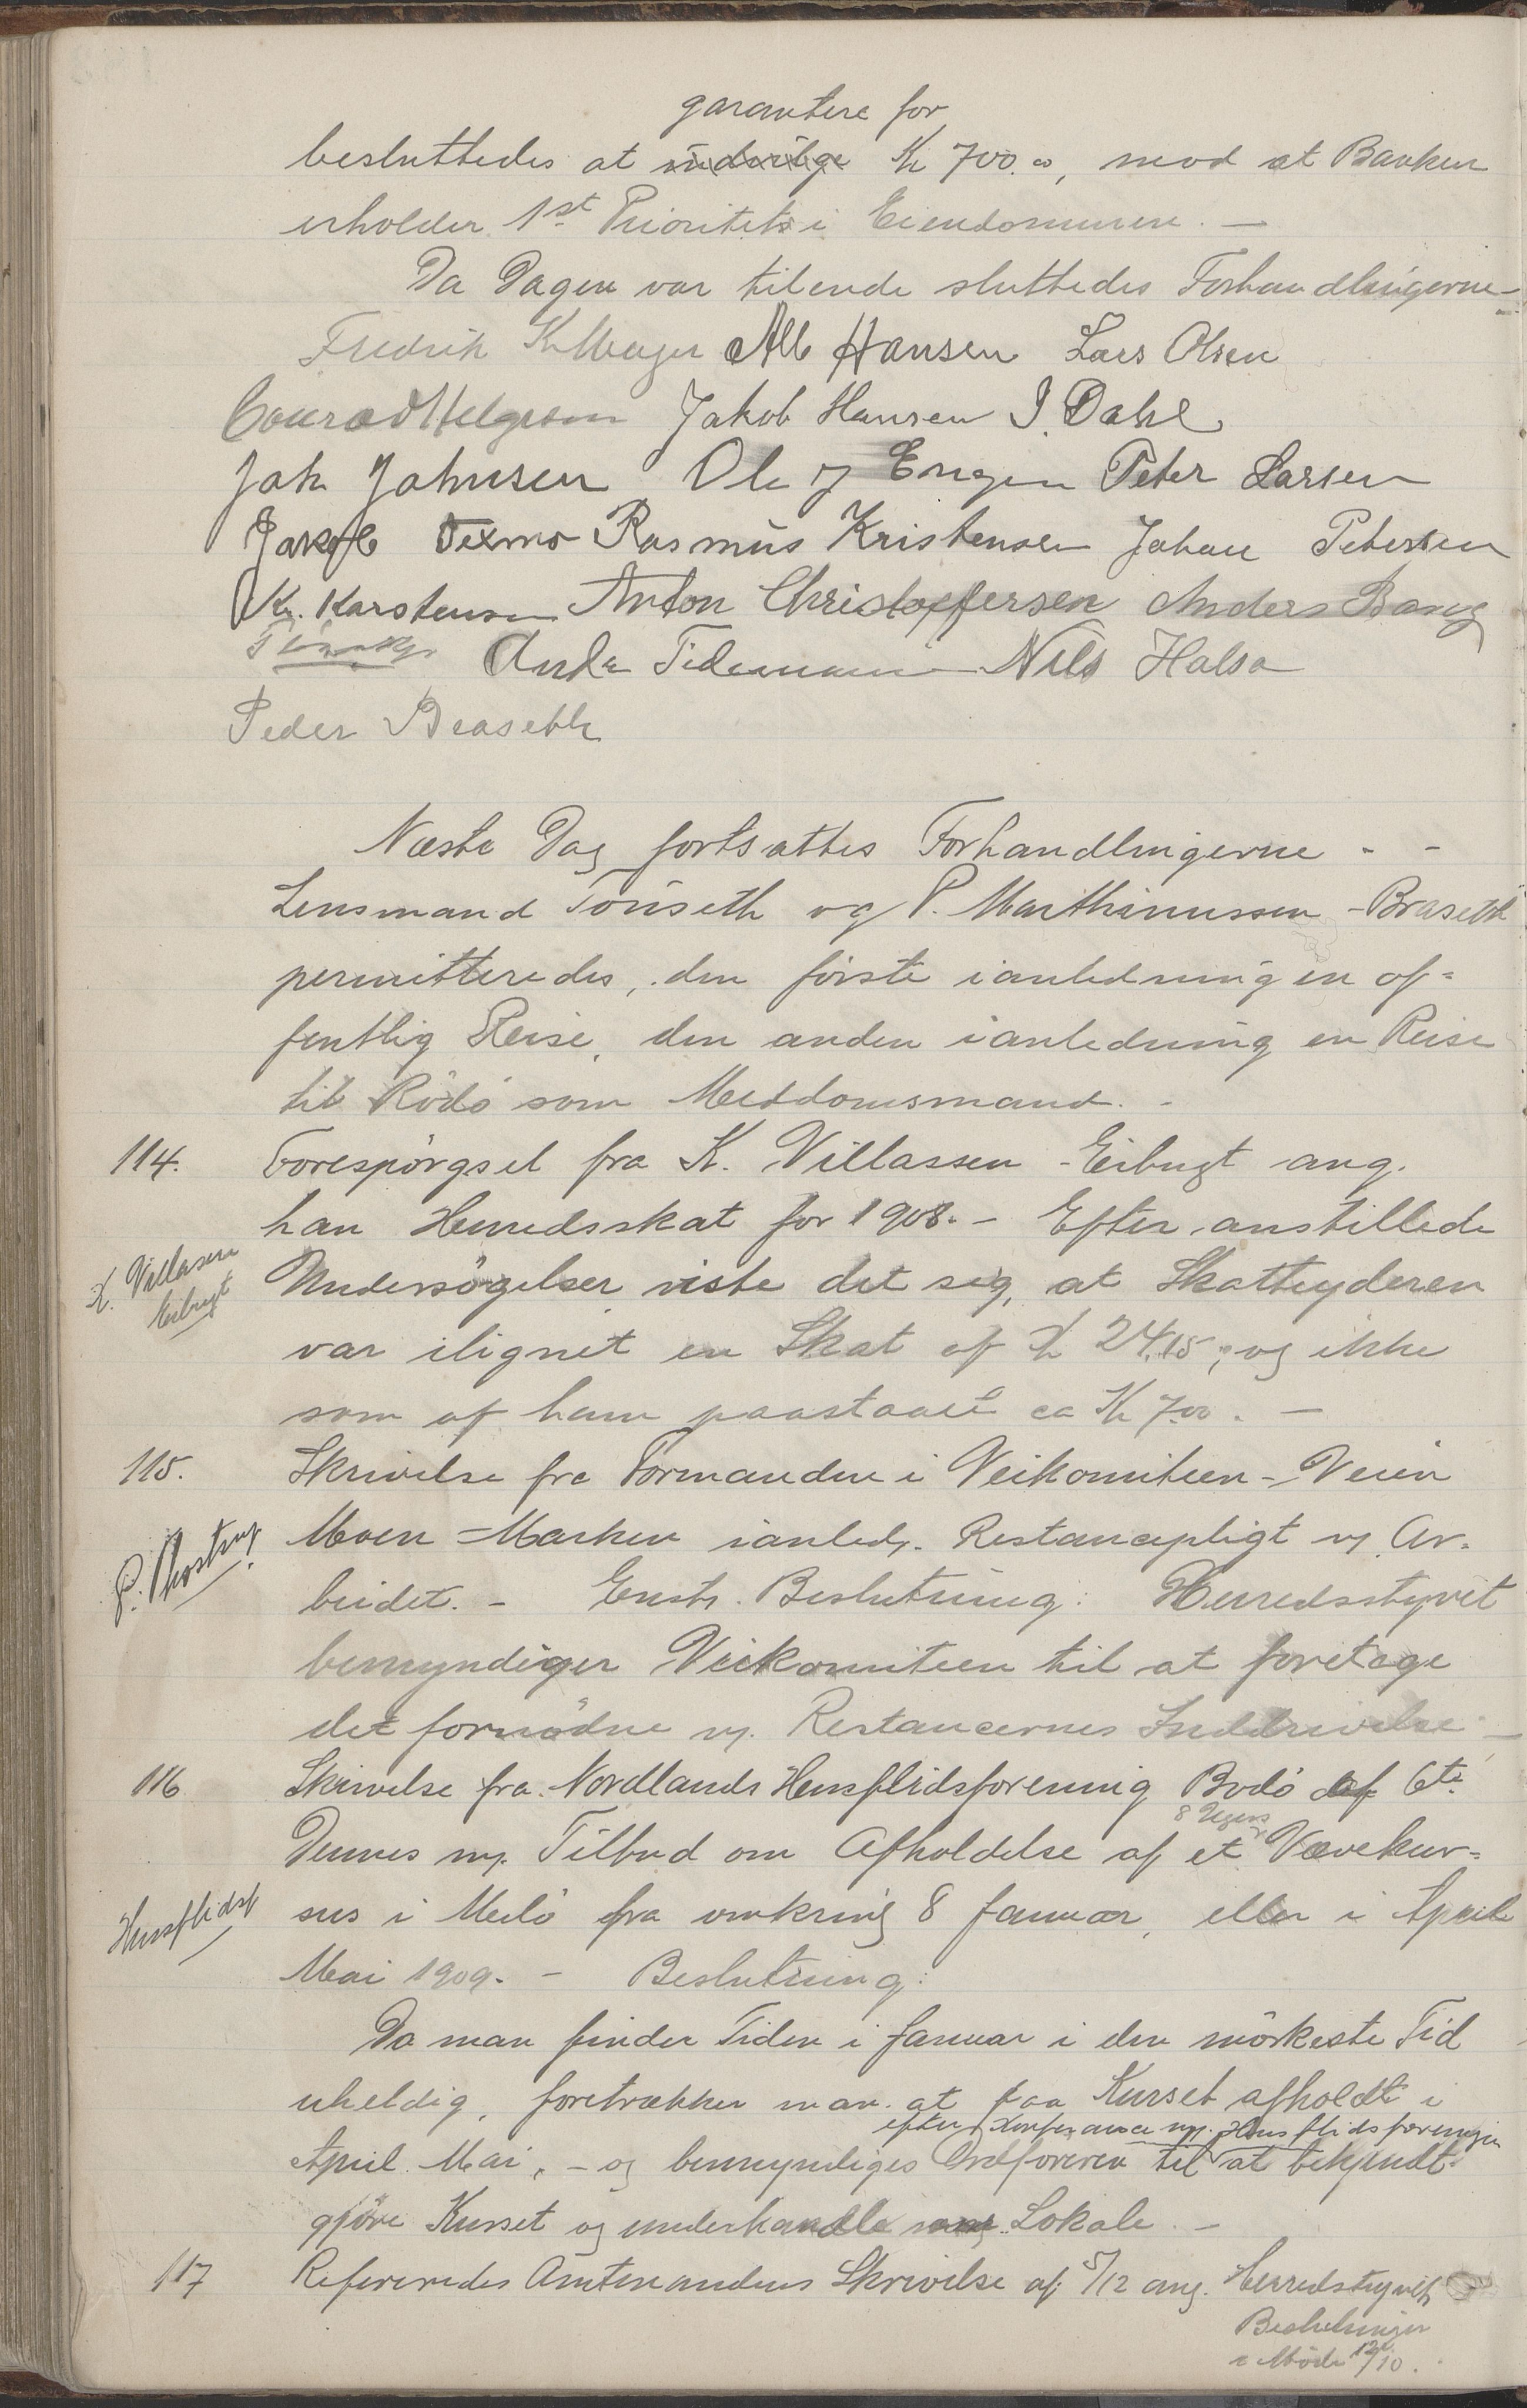 garantere for
besluttedes at indvilge Kr 700.00, mod at Banken
erholder 1st Prioritets i Eiendommen. —
Da Dagen var tilende sluttedes Forhandlingerne —
Fredrik K Meyer Alb Hansen Lars Olsen
Conrad Helgesen Jakob Hansen I. Dahl
Joh Johnsen Ole J Engen Peter Larsen
Jakob Texmo Rasmus Kristensen Johan Petersen
Kr. Karstensen Anton Christoffersen Anders Bang
Ands Tidemann Nils Halsa
Peder Braseth
Næste Dag fortsattes Forhandlingerne - -
Lensmand Tønseth og P. Marthinussen - Braseth
permitteredes, den første ianledning en of=
fentlig Reise, den anden ianledning en Reise
til Rødø som Meddomsmand. -
114. Forespørgsel fra K. Villassen - Eibugt ang.
han Herredsskat for 1908. - Efter anstillede
K. Villasen
Eibugt
Undersøgelser viste det sig, at Skatteyderen
var ilignet en Skat af Kr 24,15, og ikke
som af ham paastaaet ca Kr 7.00. —
115. Skrivelse fra Formanden i Veikomiteen - Veien
Moen = Marken ianledn. Restancepligt v. Ar-
beidet. - Enst. Beslutning: Herredsstyret
bemyndiger Veikomiteen til at foretage
det fornødne m. Restancernes Inddrivelse —
116 Skrivelse fra Nordlands Husflidsforening Bodø af 6te
8 Ugers
Dennes m. Tilbud om Afholdelse af et Vævekur=
Husflidsf
sus i Melø fra omkring 8 Januar, eller i April
Mai 1909. - Beslutning:
Da man finder Tiden i Januar i den mørkeste Tid
uheldig, foretrækker man at faa Kurset afholdt i
efter Konferance m. Husflidsforeningen
April Mai, - og bemyndiges Ordføreren til at bekjendt-
gjøre Kurset og underhandle Lokale. -
117 Refereredes Amtmandens Skrivelse af 5/12 ang. Herredsstyrets
Beslutninger
i Møde 12/10.